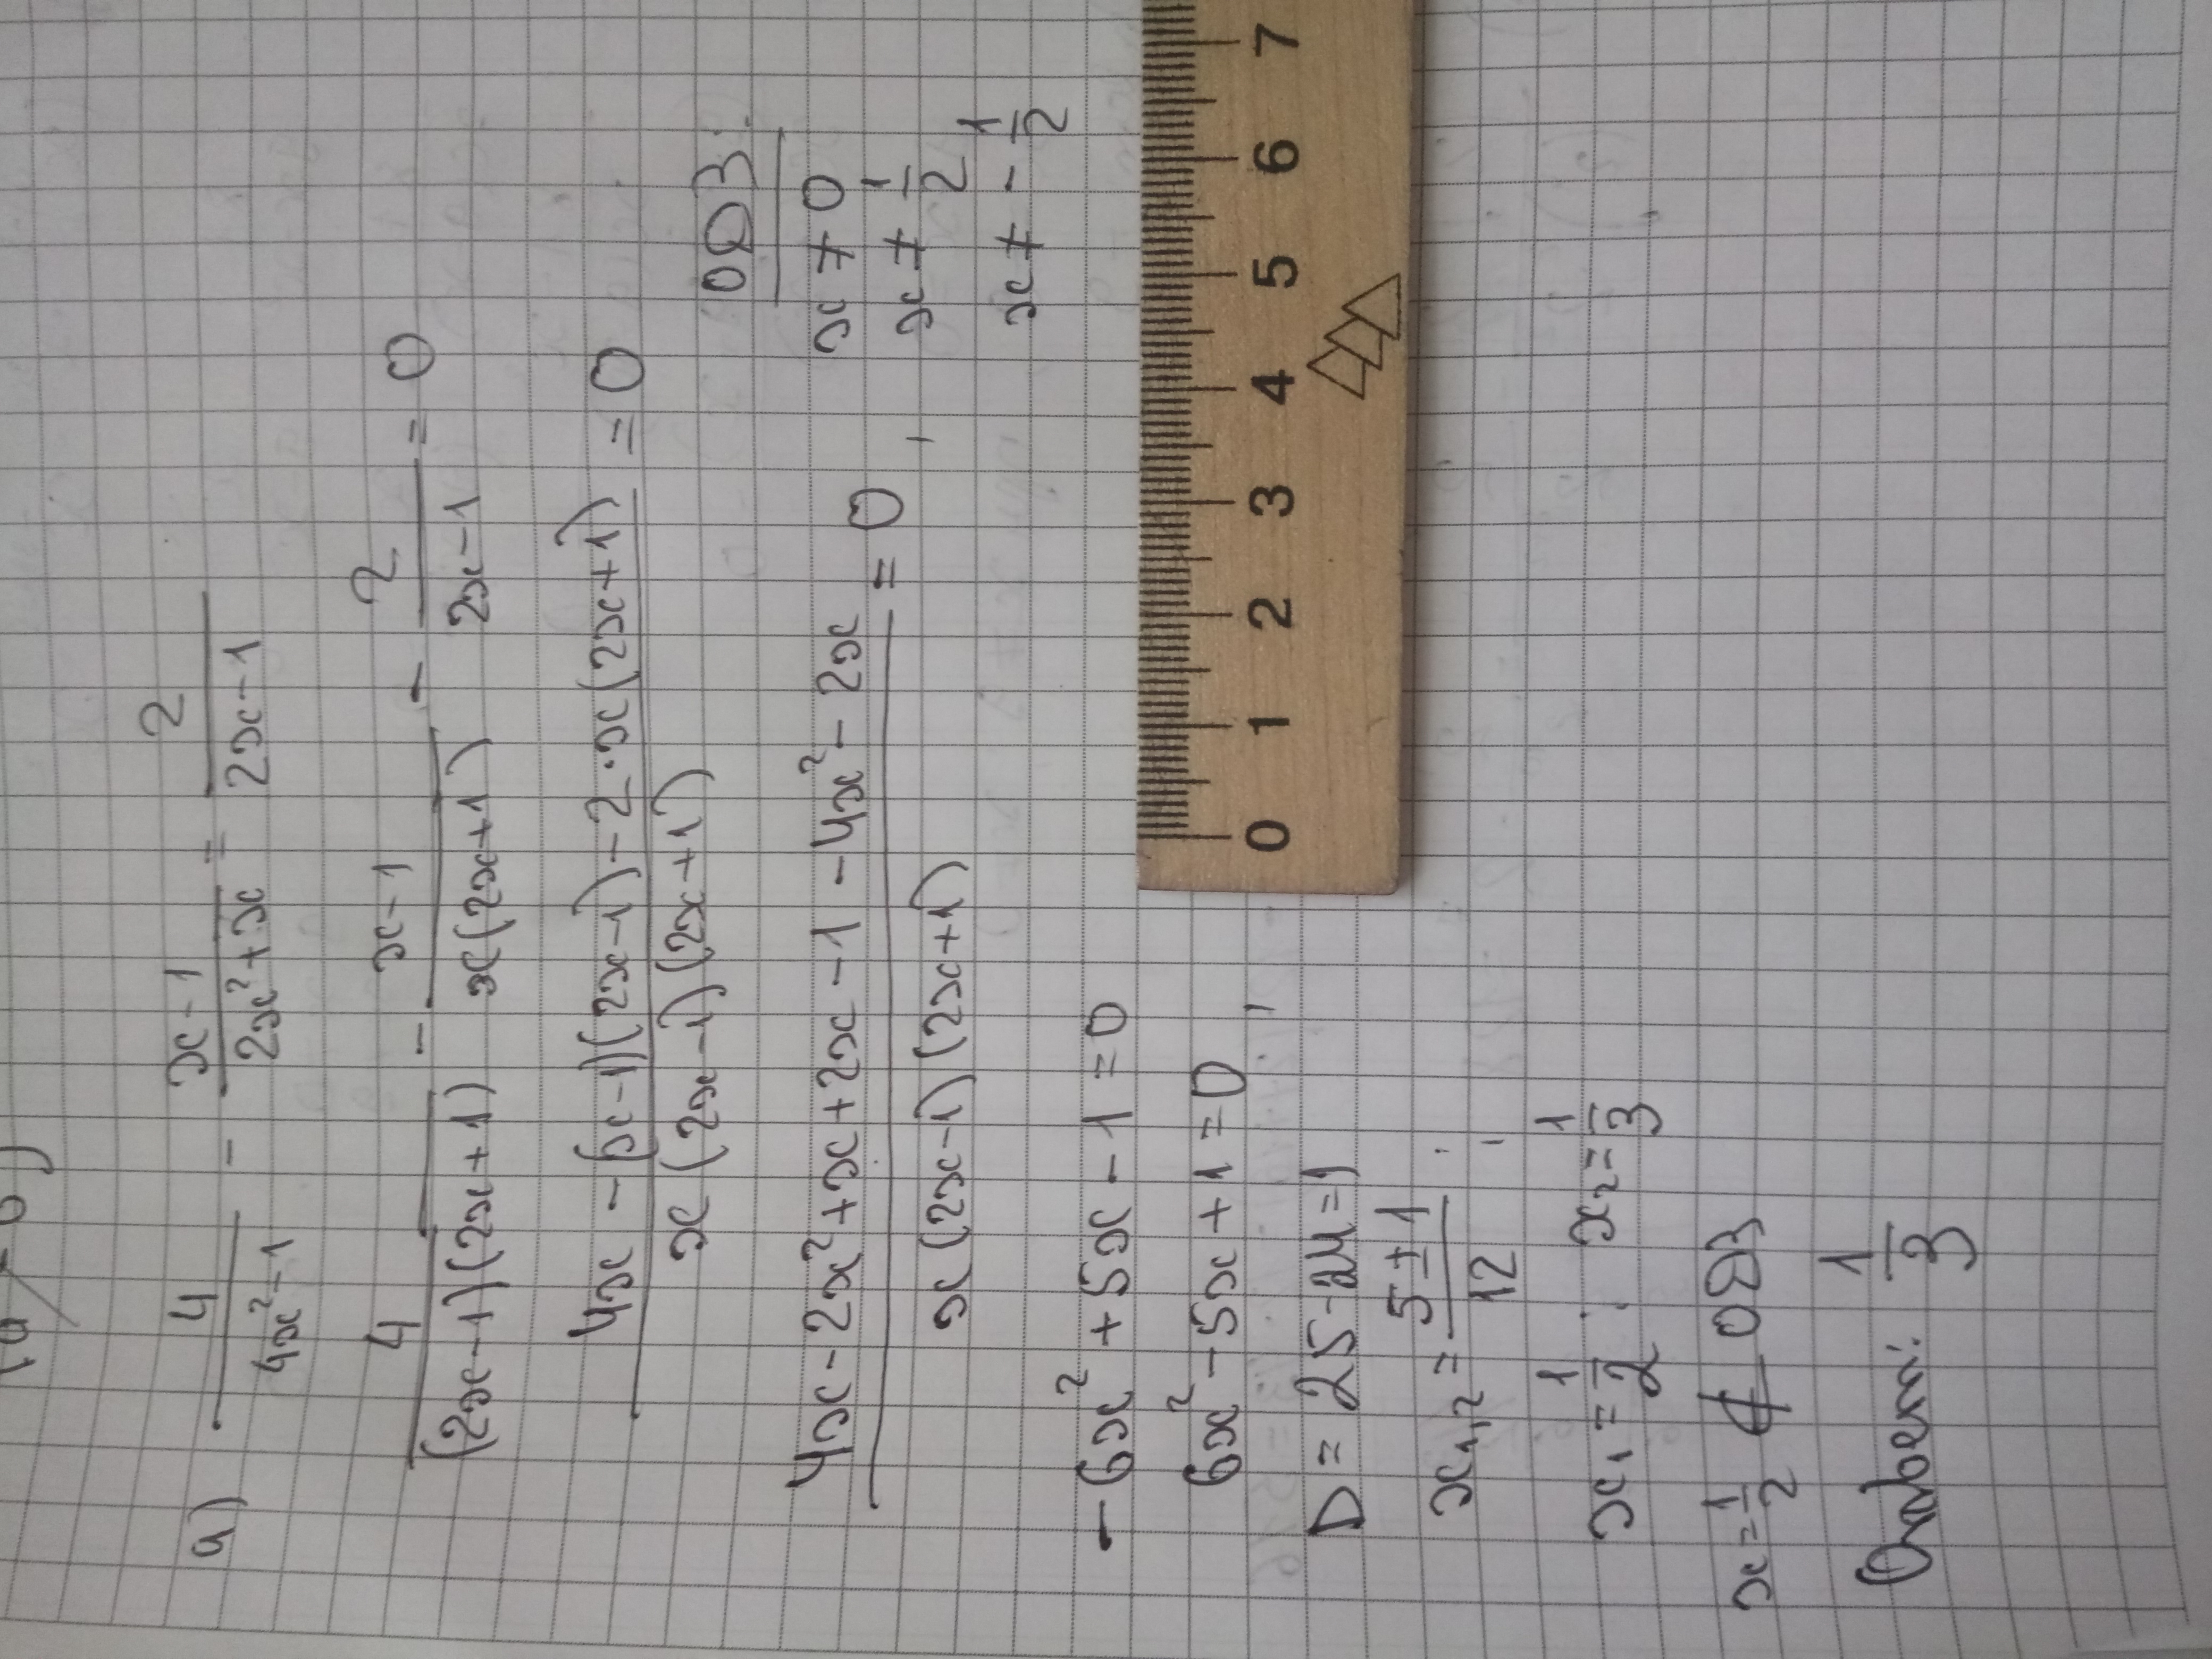 а) 4/(4x²-1) - (x-1)/(2x²+x) = 2/(2x-1)
4/((2x-1)(2x+1)) - (x-1)/(x(2x+1)) - 2/(2x-1) = 0
(4x - (x-1)(2x-1) - 2·x(2x+1))/(x(2x-1)(2x+1)) = 0
(4x - 2x² + x + 2x - 1 - 4x² - 2x)/(x(2x-1)(2x+1)) = 0
ОДЗ:
x ≠ 0
x ≠ 1/2
x ≠ - 1/2
-6x² + 5x - 1 = 0
6x² - 5x + 1 = 0
D = 25 - 24 = 1
x₁,₂ = (5±1)/12
x₁ = 1/2 ; x₂ = 1/3
x = 1/2 ∉ ОДЗ
Ответ: 1/3
0 1 2 3 4 5 6 7